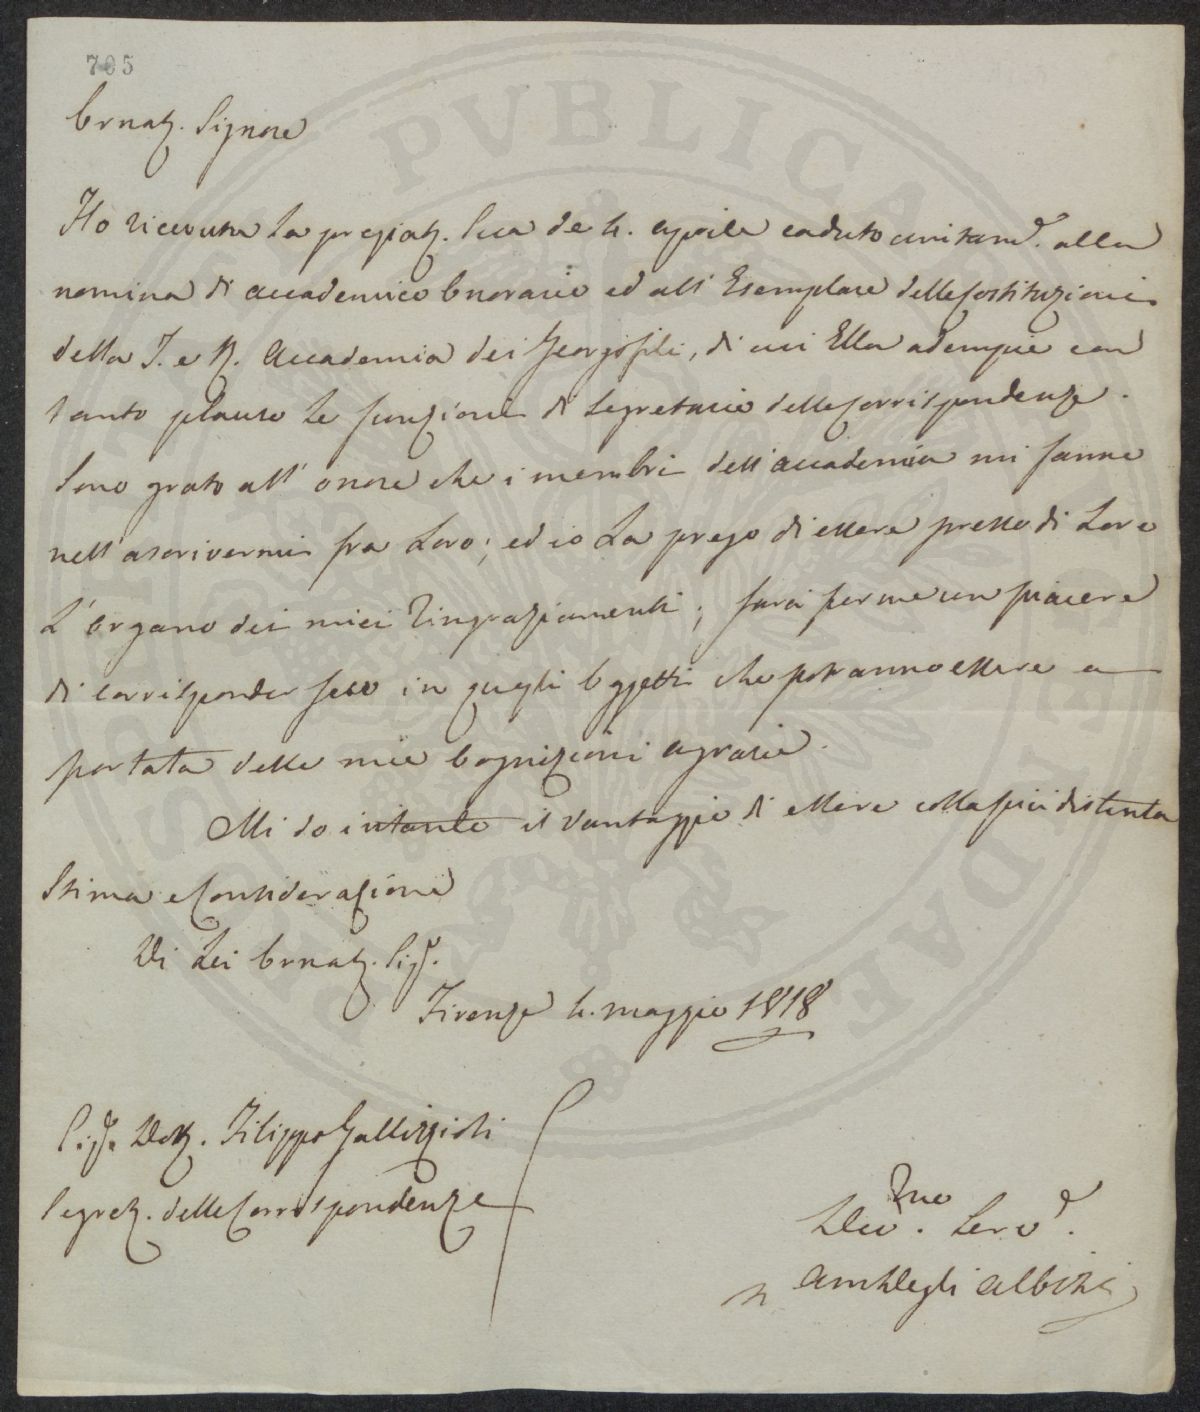 705
Ornat. Signore
Ho ricevuta La pregiat. Sua de 4. aprile caduto unitam.e alla
nomina di accademico Onorario ed all' Esemplare delle Costituzioni
della I. e R. Accademia dei Georgofili, di cui Ella adempie con
tanto plauso Le funzioni di Segretario delle Corrispondenze.
Sono grato all' onore che i membri dell'accademia mi fanno
nell'ascrivermi fra Loro; ed io La prego di essere presso di Loro
L'organo dei miei Ringraziamenti; sarà per me un piacere
di corrisponder seco in quegli Oggetti che potranno essere a
portata delle mie Cognizioni agrarie.
Mi do intanto il vantaggio di essere colla più distinta
Stima e Considerazione
Di Lei Ornat. Sig.
Firenze 4. maggio 1818
Sig. Dott. Filippo Gallizioli
Segret. delle Corrispondenze
Dev.mo Serv.e
Am Degli Albizi
PVBLICA